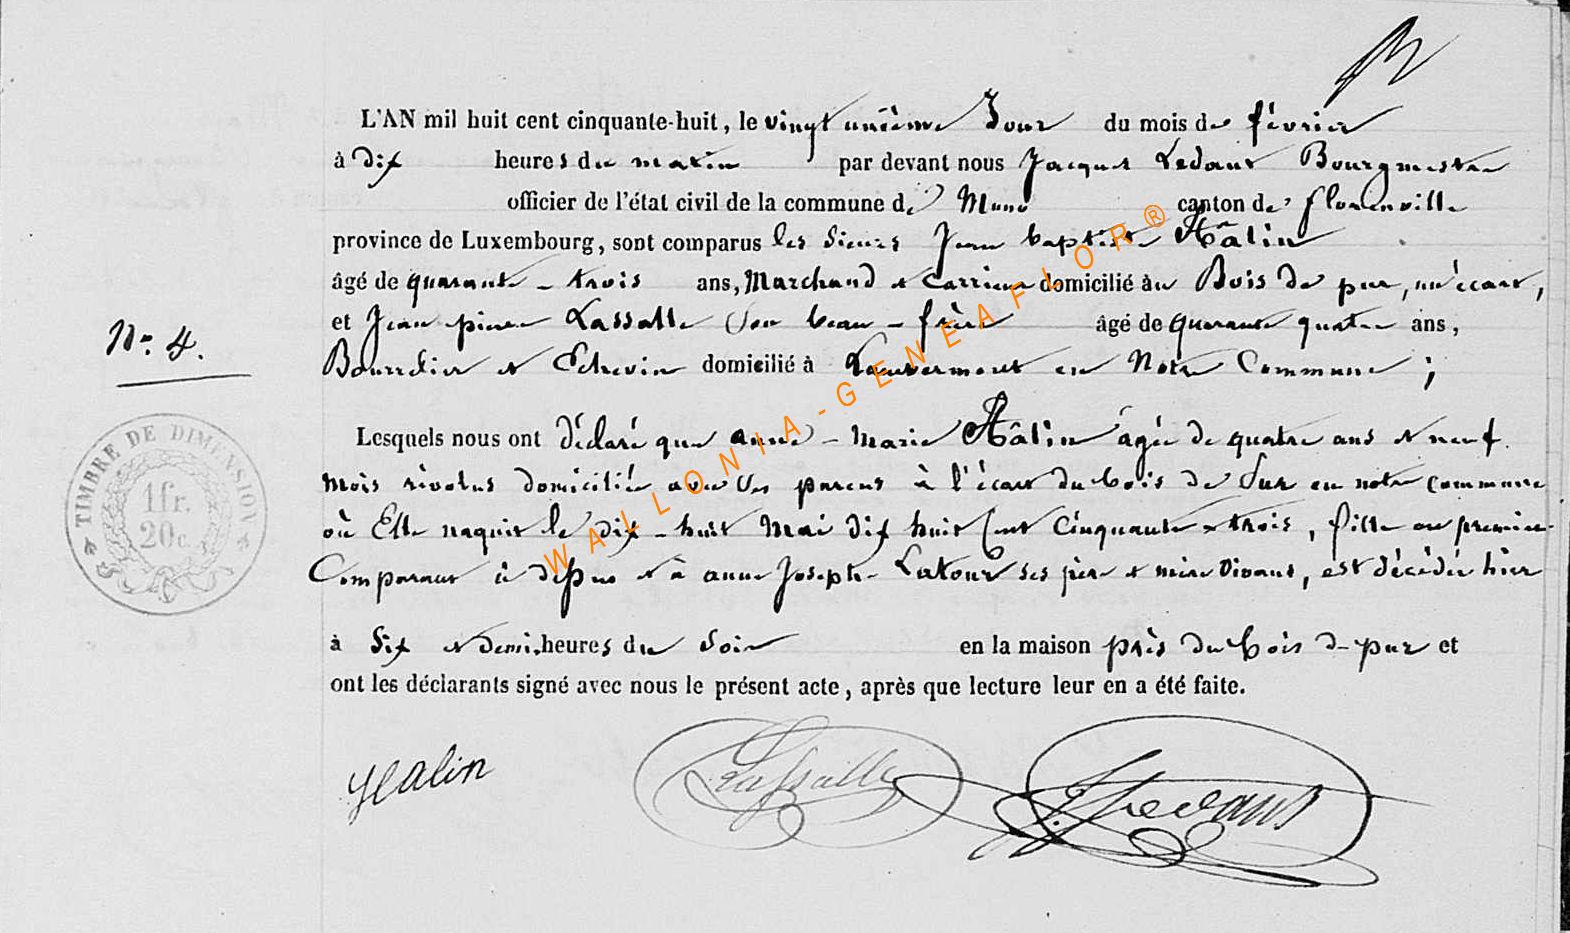 L'AN mil huit cent cinquante-huit, le vingt unième Jour du mois de février
à dix heures du matin par devant nous Jacques Ledant Bourgmestre
officier de l'état civil de la commune de Muno canton de florenville
province de Luxembourg, sont comparus les Sieurs Jean baptiste Hâlin
âgé de quarante-trois ans, Marchand et Carrier domicilié au Bois de pur, un écart,
et Jean pierre Lassalle Son beau-frère âgé de quarante quatre ans,
Bourrelier et Echevin domicilié à en Notre Commune;
No. 4.
Lesquels nous ont déclaré que anne-Marie Hâlin âgée de quatre ans et neuf
mois révolus domiciliée avec Ses parens à l'écart du bois de Pur en notre commune
où Elle naquit le dix-huit Mai dix huit Cent Cinquante-trois, fille au premier
Comparant ci dessus et à anne Joseph Latour ses père et mère vivant, est décédée hier
à Six et demi heures du Soir en la maison près du bois de pur et
ont les déclarants signé avec nous le présent acte, après que lecture leur en a été faite.
Halin Lassalle J. Ledant
TIMBRE DE DIMENSION
1 fr.
20 c.
WALLONIA-GENEAFLOR®